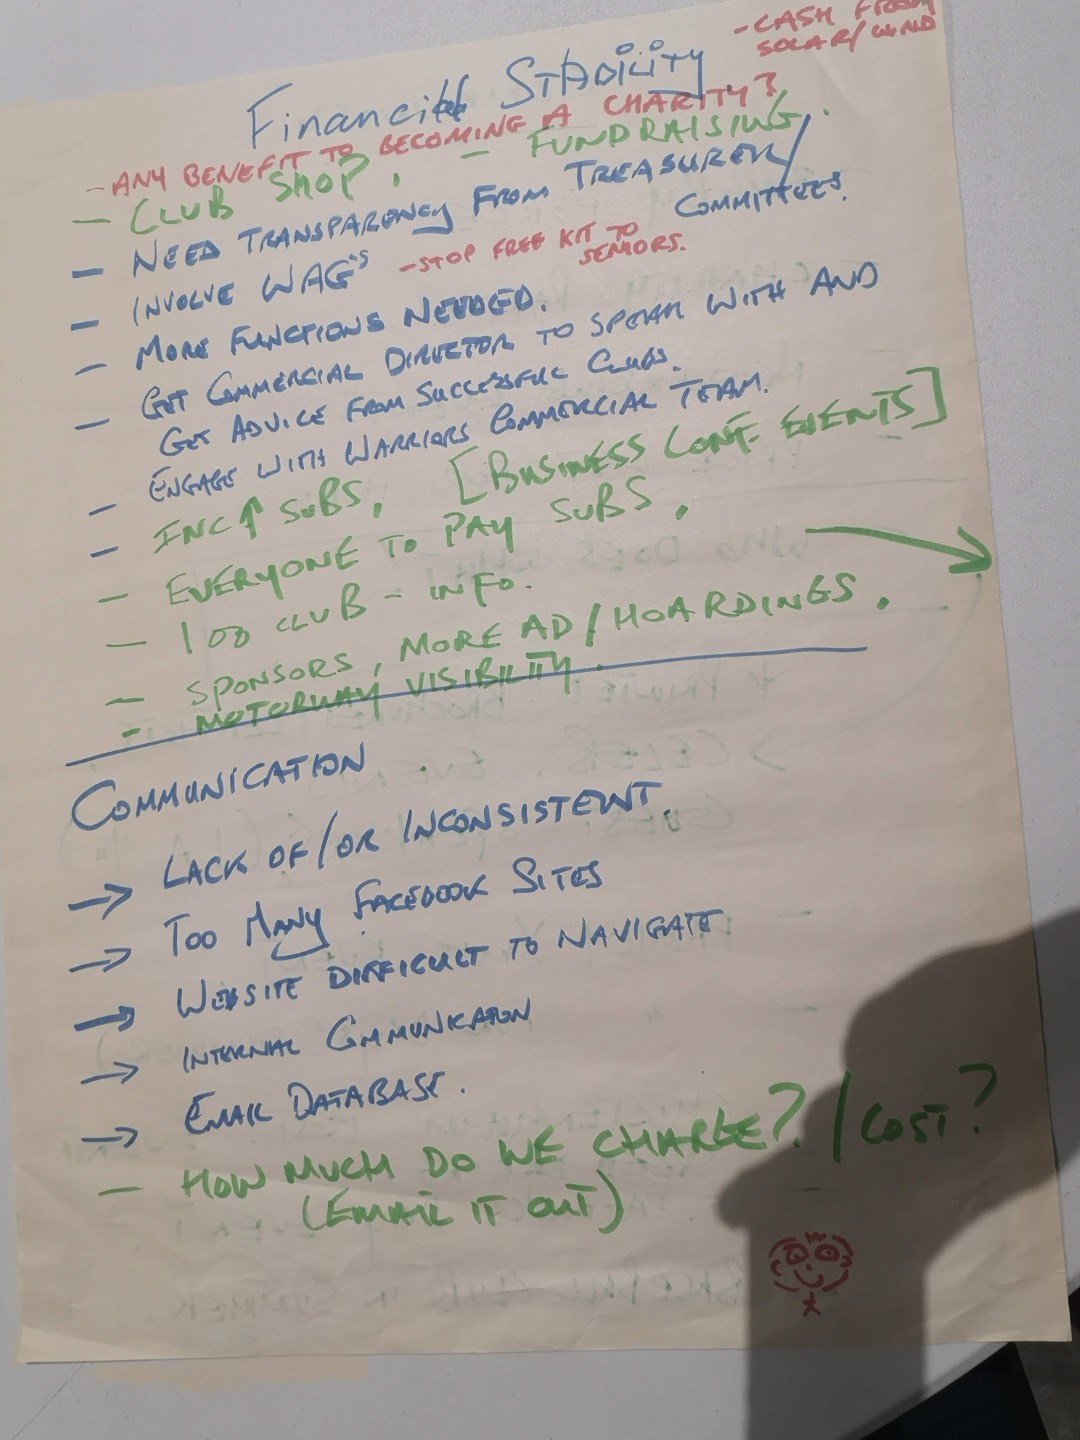 - CASH FROM
SOLAR/WIND
Financial STABILITY
- ANY BENEFIT TO BECOMING A CHARITY?
- CLUB SHOP. - FUNDRAISING.
- NEED TRANSPARENCY FROM TREASURER/
COMMITTEES.
- INVOLVE WAG'S - STOP FREE KIT TO
SENIORS.
- MORE FUNCTIONS NEEDED.
- GET COMMERCIAL DIRECTOR TO SPEAK WITH AND
GET ADVICE FROM SUCCESSFUL CLUBS.
- ENGAGE WITH WARRIORS COMMERCIAL TEAM.
- INC ↑ SUBS, [BUSINESS CONF EVENTS]
- EVERYONE TO PAY SUBS.
- 100 CLUB - INFO.
- SPONSORS, MORE AD/HOARDINGS.
- MOTORWAY VISIBILITY.
COMMUNICATION
→ LACK OF/OR INCONSISTENT.
→ TOO MANY FACEBOOK SITES
→ WEBSITE DIFFICULT TO NAVIGATE
→ INTERNAL COMMUNICATION
→ EMAIL DATABASE.
- HOW MUCH DO WE CHARGE?/COST?
(EMAIL IT OUT)